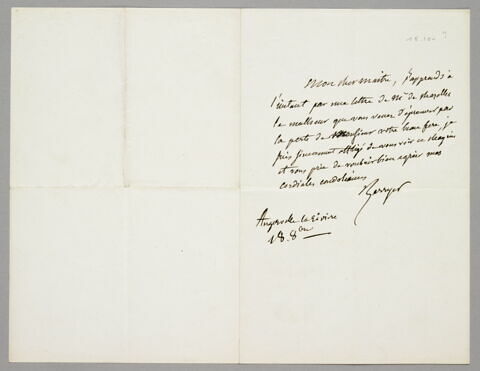 Mon cher maître, j'apprends à
l'instant par une lettre de Mr de
le malheur que vous venez d'éprouver par
la perte de Monsieur votre beau frère, je
suis sincèrement affligé de vous voir ce chagrin
et vous prie de vouloir bien agréer mes
cordiales condoléances
Berryer
Angerville la Rivière
18. 8bre